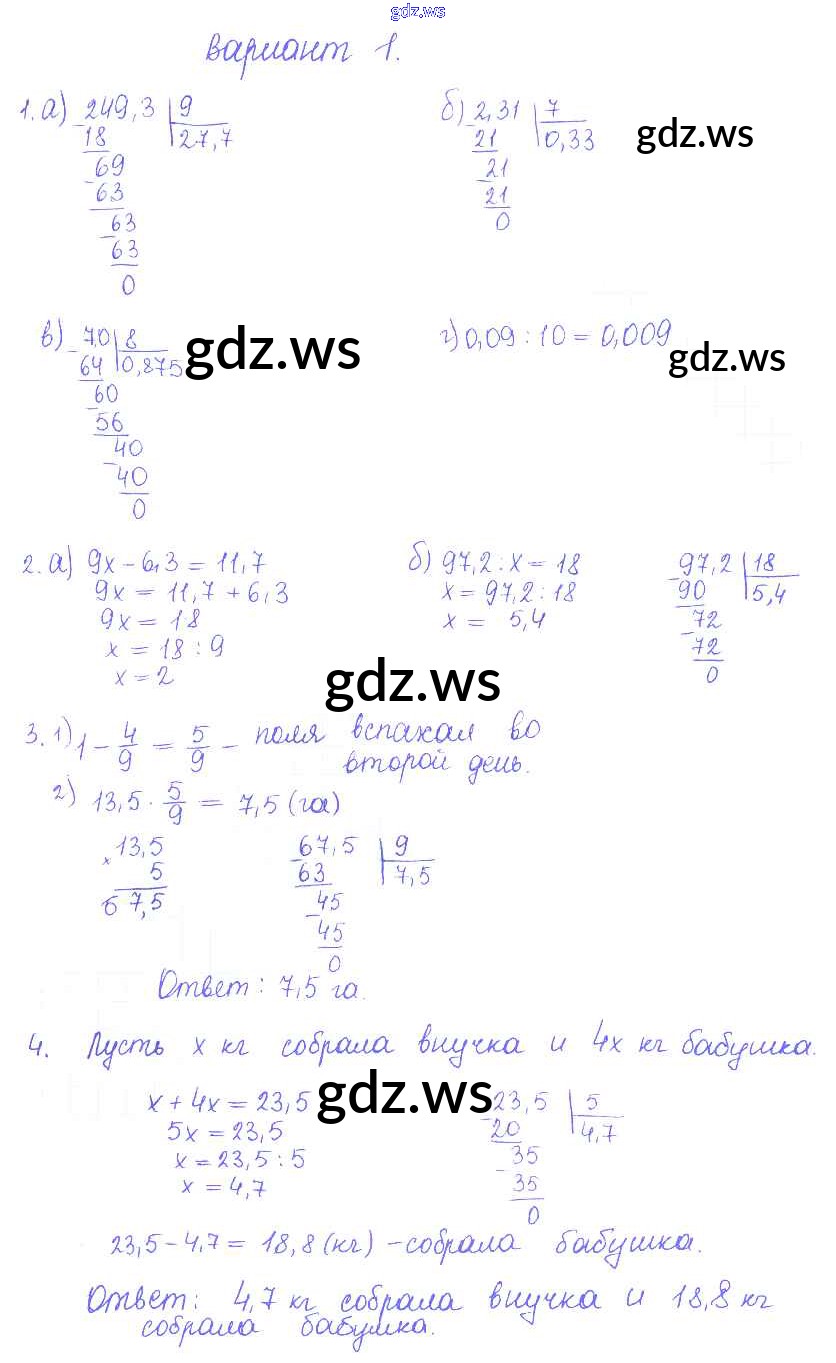 gdz.ws
вариант 1.
1. а) 249,3 | 9
- 18 | 27,7
69
- 63
63
- 63
0
б) 2,31 | 7
- 21 | 0,33
21
- 21
0
gdz.ws
в) 7,0 | 8
- 64 | 0,875
60
- 56
40
- 40
0
gdz.ws
г) 0,09 : 10 = 0,009
gdz.ws
2. а) 9x - 6,3 = 11,7
9x = 11,7 + 6,3
9x = 18
x = 18 : 9
x = 2
б) 97,2 : x = 18
x = 97,2 : 18
x = 5,4
97,2 | 18
- 90 | 5,4
72
- 72
0
gdz.ws
3. 1) 1 - 4/9 = 5/9 - поля вспахал во
второй день.
2) 13,5 · 5/9 = 7,5 (га)
× 13,5
5
67,5
67,5 | 9
- 63 | 7,5
45
- 45
0
Ответ: 7,5 га.
4. Пусть x кг собрала внучка и 4x кг бабушка.
x + 4x = 23,5
5x = 23,5
x = 23,5 : 5
x = 4,7
gdz.ws
23,5 | 5
- 20 | 4,7
35
- 35
0
23,5 - 4,7 = 18,8 (кг) - собрала бабушка.
Ответ: 4,7 кг собрала внучка и 18,8 кг
собрала бабушка.